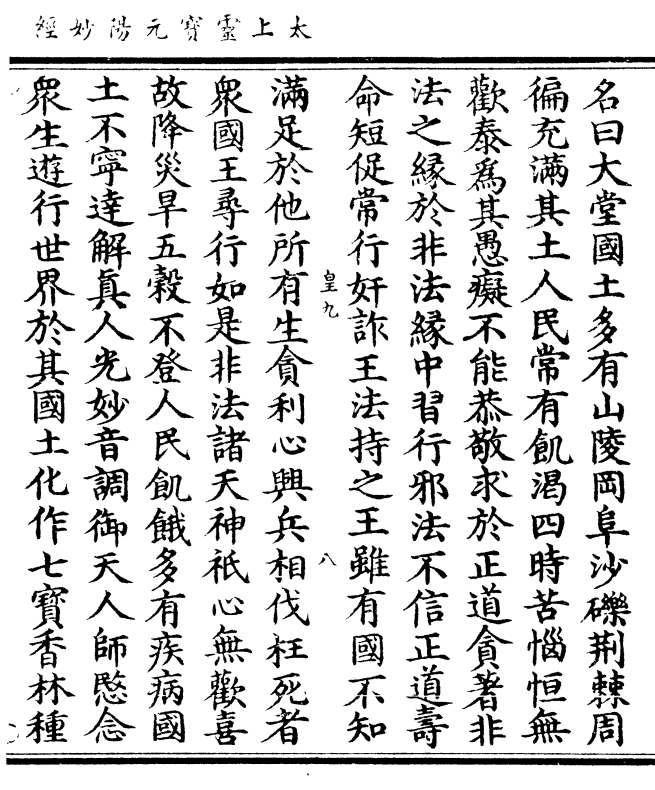 太上靈寳元陽妙經
名曰大堂國土多有山陵岡阜沙礫荆棘周
徧充滿其土人民常有飢渴四時苦惱恒無
歡泰爲其愚癡不能恭敬求於正道貪著非
法之緣於非法緣中習行邪法不信正道壽
命短促常行奸詐王法持之王雖有國不知
皇九
八
滿足於他所有生貪利心興兵相伐枉死者
衆國王尋行如是非法諸天神祇心無歡喜
故降災旱五穀不登人民飢餓多有疾病國
土不寧達解真人光妙音調御天人師愍念
衆生遊行世界於其國土化作七寳香林種